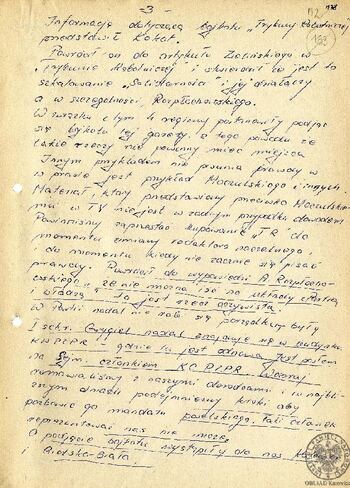 - 3 -
178
Informację dotyczącą bojkotu "Trybuny Robotniczej"
przedstawił Kokot.
Powrócił on do artykułu Zielińskiego w
"Trybunie Robotniczej" i stwierdził co jest to
szkalowanie "Solidarności" i jej działaczy
a w szczególności, Rozpłochowskiego.
W związku z tym 4 regiony postanowiły podjąć
się bojkotu tej gazety, z tego powodu że
takie rzeczy nie powinny mieć miejsca
Innym przykładem nie pisania prawdy w
w prasie jest przykład Moczulskiego i innych.
Materiał, który przedstawiany przeciwko Moczulskie-
mu w TV nie jest w żadnym przypadku dowodem
Powinniśmy zaprzestać kupowania "TR" do
momentu zmiany redaktora naczelnego,
do momentu kiedy nie zacznie się pisać
prawdy. Powrócił do wypowiedzi A. Rozpłocho-
wskiego, że nie można iść na układy
władzą. To jest rzecz oczywista.
W Partii nadal nie robi się porządku, były
I sekr. Grygiel nadal znajduje się w budynku
KW PZPR i gdzie tu jest odnowa, jest posłem
na Sejm, członkiem KC PZPR. Wczoraj
rozmawialiśmy z naszymi doradcami i w najbli-
ższym dniach podejmiemy kroki aby
pozbawić go mandatu poselskiego. Taki człowiek
reprezentować nas nie może.
O podjęcie bojkotu wystąpiły do nas
i Bielsko-Biała
ODDZIAŁ Katowice